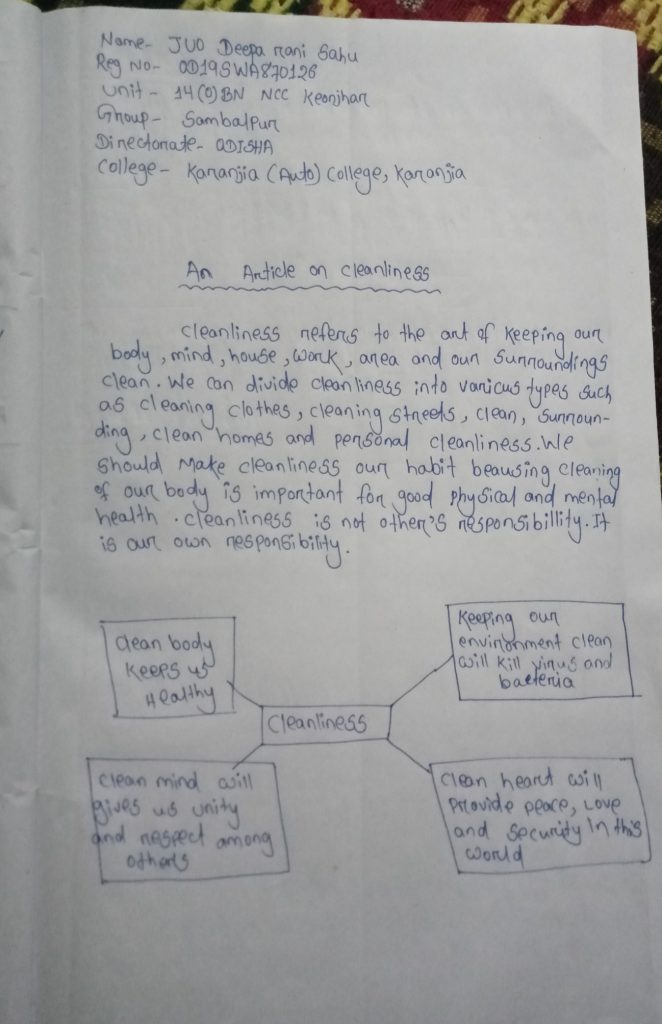 Name- JUO Deepa rani Sahu
Reg No- OD19SWA870126
Unit - 14(O)BN NCC Keonjhar
Group- Sambalpur
Directorate- ODISHA
College- Karanjia (Auto) College, Karanjia
An Article on cleanliness
Cleanliness refers to the art of keeping our
body, mind, house, work, area and our surroundings
clean. We can divide cleanliness into various types such
as cleaning clothes, cleaning streets, clean, surroun-
ding, clean homes and personal cleanliness. We
should make cleanliness our habit beausing cleaning
of our body is important for good physical and mental
health. cleanliness is not other's responsibillity. It
is our own responsibility.
Clean body
keeps us
Healthy
Keeping our
environment clean
will kill virus and
bacteria
Cleanliness
Clean mind will
gives us unity
and respect among
others
Clean heart will
Provide peace, Love
and security In this
world